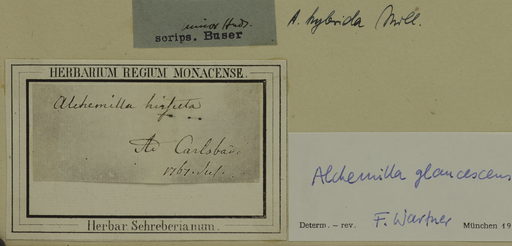 minor Huds.
scrips. Buser
A. hybrida Mill.
HERBARIUM REGIUM MONACENSE.
Alchemilla hirsuta
Ad Carlsbad.
1767.
Herbar. Schreberianum.
Alchemilla glaucescens
Determ. – rev. F. Wartner München 19